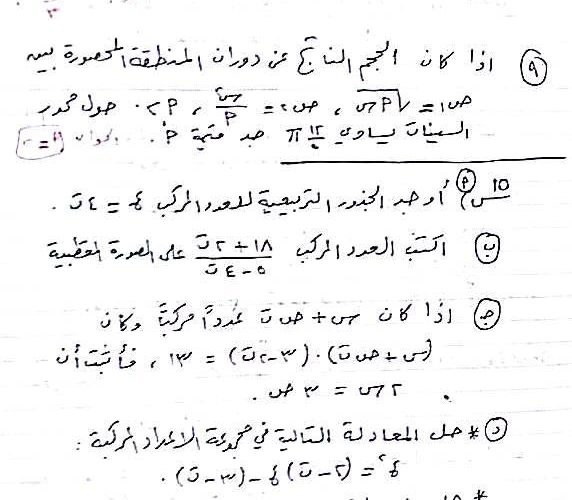 ٣
٩ اذا كان الحجم الناتج عن دوران المنطقة المحصورة بين
ص١ = √(٢س) ، ص٢ = س٢/٢ ، ٢ > ٠ حول محور
السينات يساوي π جد قيمة ٢ .
س١٥ ٢ أوجد الجذور التربيعية للعدد المركب ع = ٤ت .
ب اكتب العدد المركب (١٨ + ٢ت)/(٥ - ٤ت) على الصورة القطبية
ج اذا كان س + ص ت عدداً مركباً وكان
(س + ص ت) . (٣ - ٢ت) = ١٣ ، فأثبت أن
٢س = ٣ص .
د * حل المعادلة التالية في مجموعة الاعداد المركبة :
ع٢ = (٢ - ت) ع - (٣ - ت) .